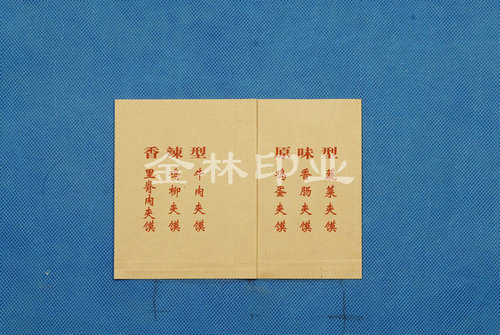 香辣型
里脊肉夹馍
鸡柳夹馍
牛肉夹馍
原味型
鸡蛋夹馍
香肠夹馍
菜夹馍
金林印业